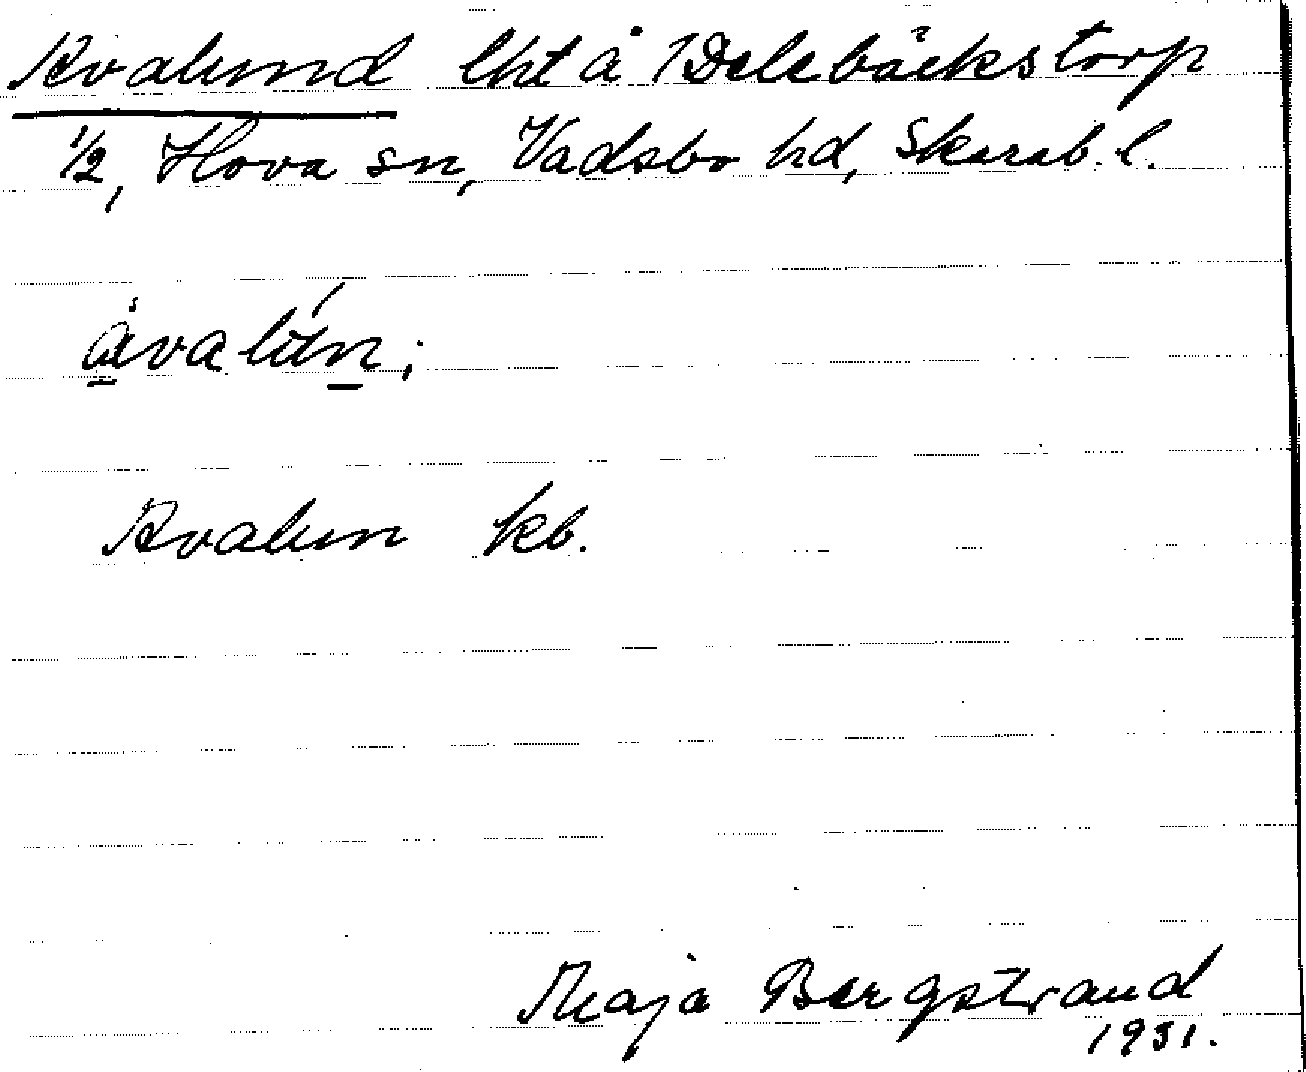 Avalund lht å Delebäckstorp
1/2, Hova sn, Vadsbo hd, Skarab. l.
Avalun kb.
Maja Bergstrand
1931.